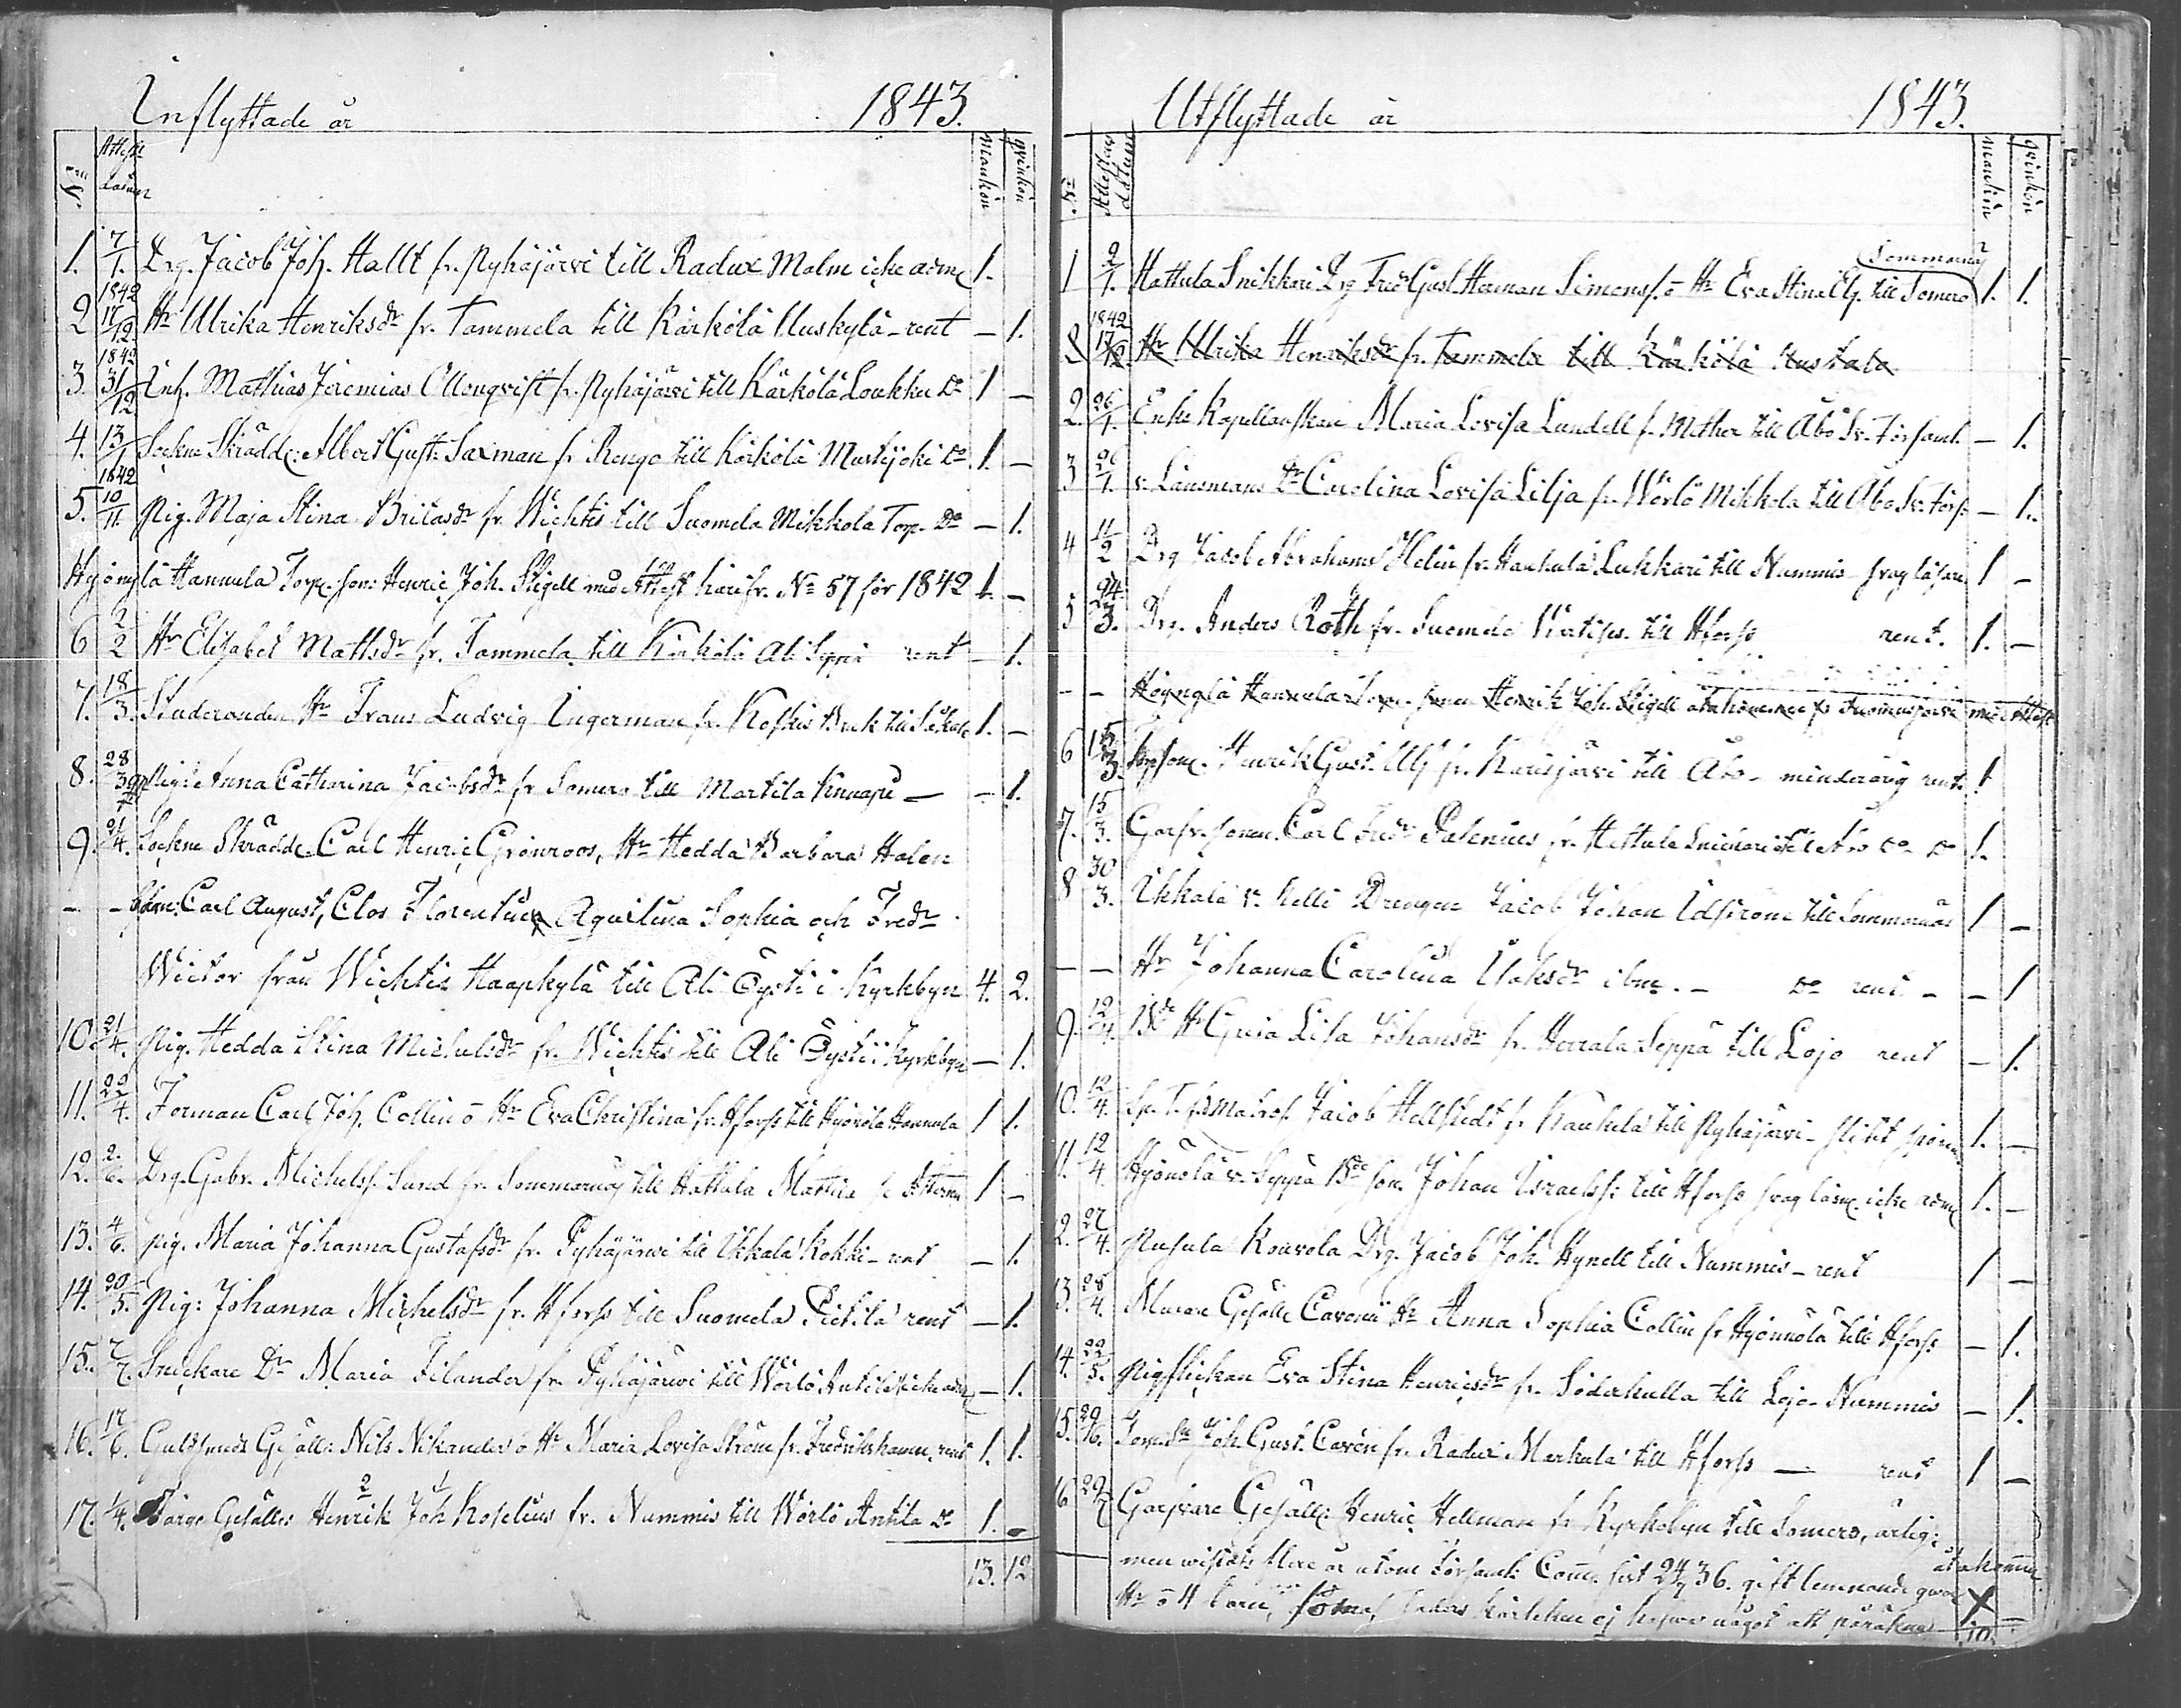 Inflyttade år 1843.
N:o Attest datum Mankön Qvinkön
1. 7/1. Drg. Jacob Joh. Hallt fr. Pyhäjärvi till Radux Malm icke adm. 1.
2 1842 17/12. Hr Ulrika Henriksdr fr. Tammela till Kärkölä Uuskylä - rent – 1.
3. 1842 31/12 Inh. Mathias Jeremias Ollonqvist fr. Pyhäjärvi till Kärkölä Loukku Do 1 –
4. 13/1 Sockne Skrädd. Albert Gust. Saxman fr Rengo till Kärkölä Mustijoki Do 1. –
5. 1842 10/11. Pig. Maja Stina Britasdr fr. Wichtis till Suomela Mikkola Torp. Do – 1.
Hyöngilä Hannula Torp. son: Henric Joh. Stigell med Attest härifr. No 57 för 1842 1. –
6 2/2 Hr Elisabet Mattsdr fr. Tammela till Kärkölä Ali Seppä rent – 1.
7. 18/3. Studeranden Hr Frans Ludvig Ingerman fr. Koskis Bruk till 1. –
8. 28/3 Pig: Anna Catharina Jacobsdr fr Somero till Martila Knaapi – – 1.
9. 21/4. Sockne Skrädd. Carl Henric Grönroos, Hr Hedda Barbara Halen
– – barn: Carl August, Clas Florentin Aquilina Sophia och Fredr
Wictor från Wichtis Haapkylä till Ali Öysti i Kyrkbyn 4. 2.
10. 21/4. Pig. Hedda Stina Michelsdr fr. Wichtis till Ali Öysti i Kyrkbyn – 1.
11. 22/4. Forman Carl Joh. Collin o Hr Eva Christina fr. Hforss till Hyönölä Hannula 1 1.
12. 2./6. Drg. Gabr. Michelss. Sund fr. Sommarnäs till Hattula Mattila 1 –
13. 4/6. Pig. Maria Johanna Gustafsdr fr. Pyhäjärvi till Ikkala Kokki - rent – 1.
14. 20/5. Pig: Johanna Michelsdr fr. Hforss till Suomela Pietilä rent – 1.
15. 2/7. Snickare Dr Maria Filander fr. Pyhäjärvi till Wörlö Antila icke adm – 1.
16. 17/6. Guldsmeds Gesäll: Nils Nikander o Hr Maria Lovisa Ström fr. Fredrikshamn. rent 1. 1.
17. 1/4. Gesällen Henrik Joh Roselius fr. Nummis till Wörlö Antila Do 1. –
13. 12
Utflyttade år 1843.
No Attestens datum Mankön Qvinkön
Sommarnäs
1 2/1. Hattula Snikkari Drg Fredr Gust Herman Simonss. o Hr Eva Stina Elg. till Somero 1. 1.
2 1842 17/12. Hr Ulrika Henriksdr fr. Tammela till Kärkölä
2. 26/1. Enke Kapellanskan Maria Lovisa Lundell f. Mether till Åbo Sv. Församl. – 1.
3 26/1. v. Länsmans Dr Carolina Lovisa Lilja fr. Wörlö Mikkola till Åbo Sv. Förs: – 1.
4 11/2 Drg Jacob Abrahams Helin fr. Haukula Lukkari till Nummis svag läsare 1 –
5 24/3. Drg. Anders Roth fr. Suomela till Hforss rent. 1. –
– – Hyöngilä Hannula Torp. son Henrik Joh. Stigell med Attest
6 15/3. Torpson. Henrik Gust. Ulf fr. Karisjärvi till Åbo - minderårig rent. 1
7. 15/3. Garfv. sonen. Carl Fredr Palenius fr. Hattula Snickari till Åbo Do Do 1.
8 30/3. Ikkala v. Nelli Drengen Jacob Johan Idström till Sommarnäs 1 –
– – Hr Johanna Carolina Isaksdr ibm. – Do rent – – 1
9. 12/4. Bde Hr Greta Lisa Johansdr fr. Herrala Seppä till Lojo rent – 1.
10. 12/4. Jacob Hellstedt fr Haukela till Pyhäjärvi - 1. –
11. 12/4 Hyönölä v. Seppä Bde son. Johan Israelss: till Hforss svag läsn. icke adm 1. –
12. 27/4. Pusula Kouvola Drg. Jacob Joh. Hynell till Nummis - rent 1 –
13. 28/4. Murare Gesälle Cavenii Hr Anna Sophia Collin fr Hyönnölä till Hforss – 1.
14. 22/5. Pigflickan Eva Stina Henricsdr fr. Söderkulla till Lojo - Nummis – 1.
15. 29/6. Joh. Gust. Cavén fr. Radux Markula till Hforss – rent 1 –
16 29/7 Garfvare Gesäll: Henric Hellman fr Kyrkobyn till Somero, ärlig:
men wistats flere år utom Församl: Com. sist 24/9 36. gift lemnande
Hr o 4 barn, kärleken ej något att påräkna –
10.